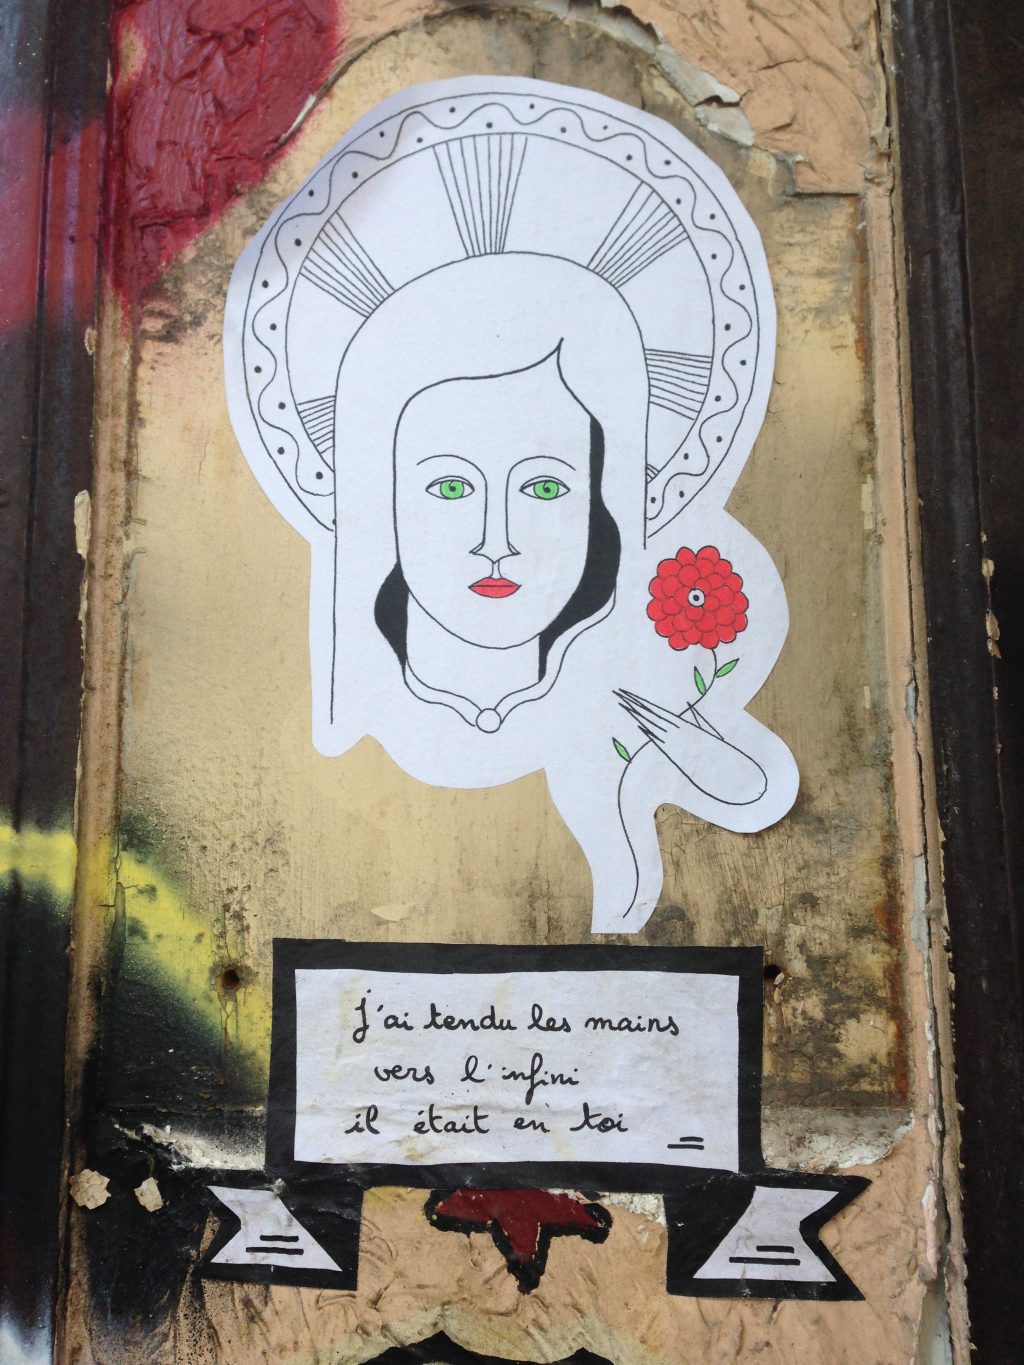 j'ai tendu les mains
vers l'infini
il était en toi